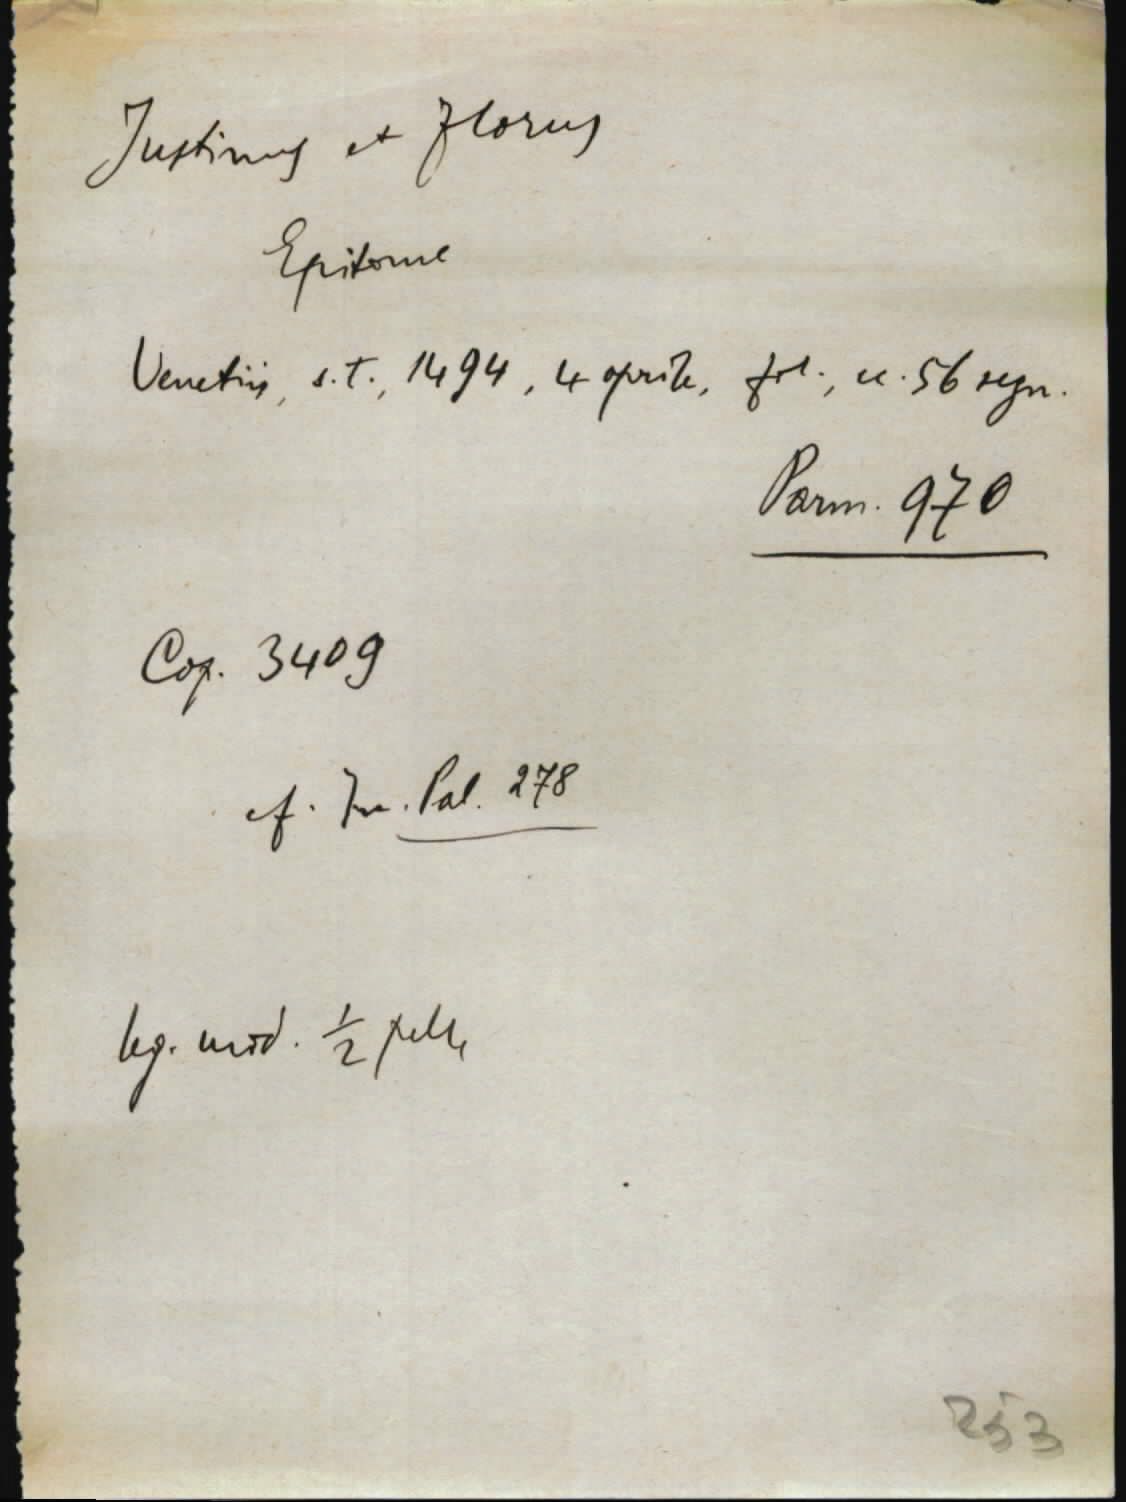 Justinus et Florus
Epitome
Venetiis, s.t., 1494, 4 aprile, fol., cc. 56 segn.
Parm. 970
Cop. 3409
cf. In. Pal. 278
leg. mod. 1/2 pelle
253